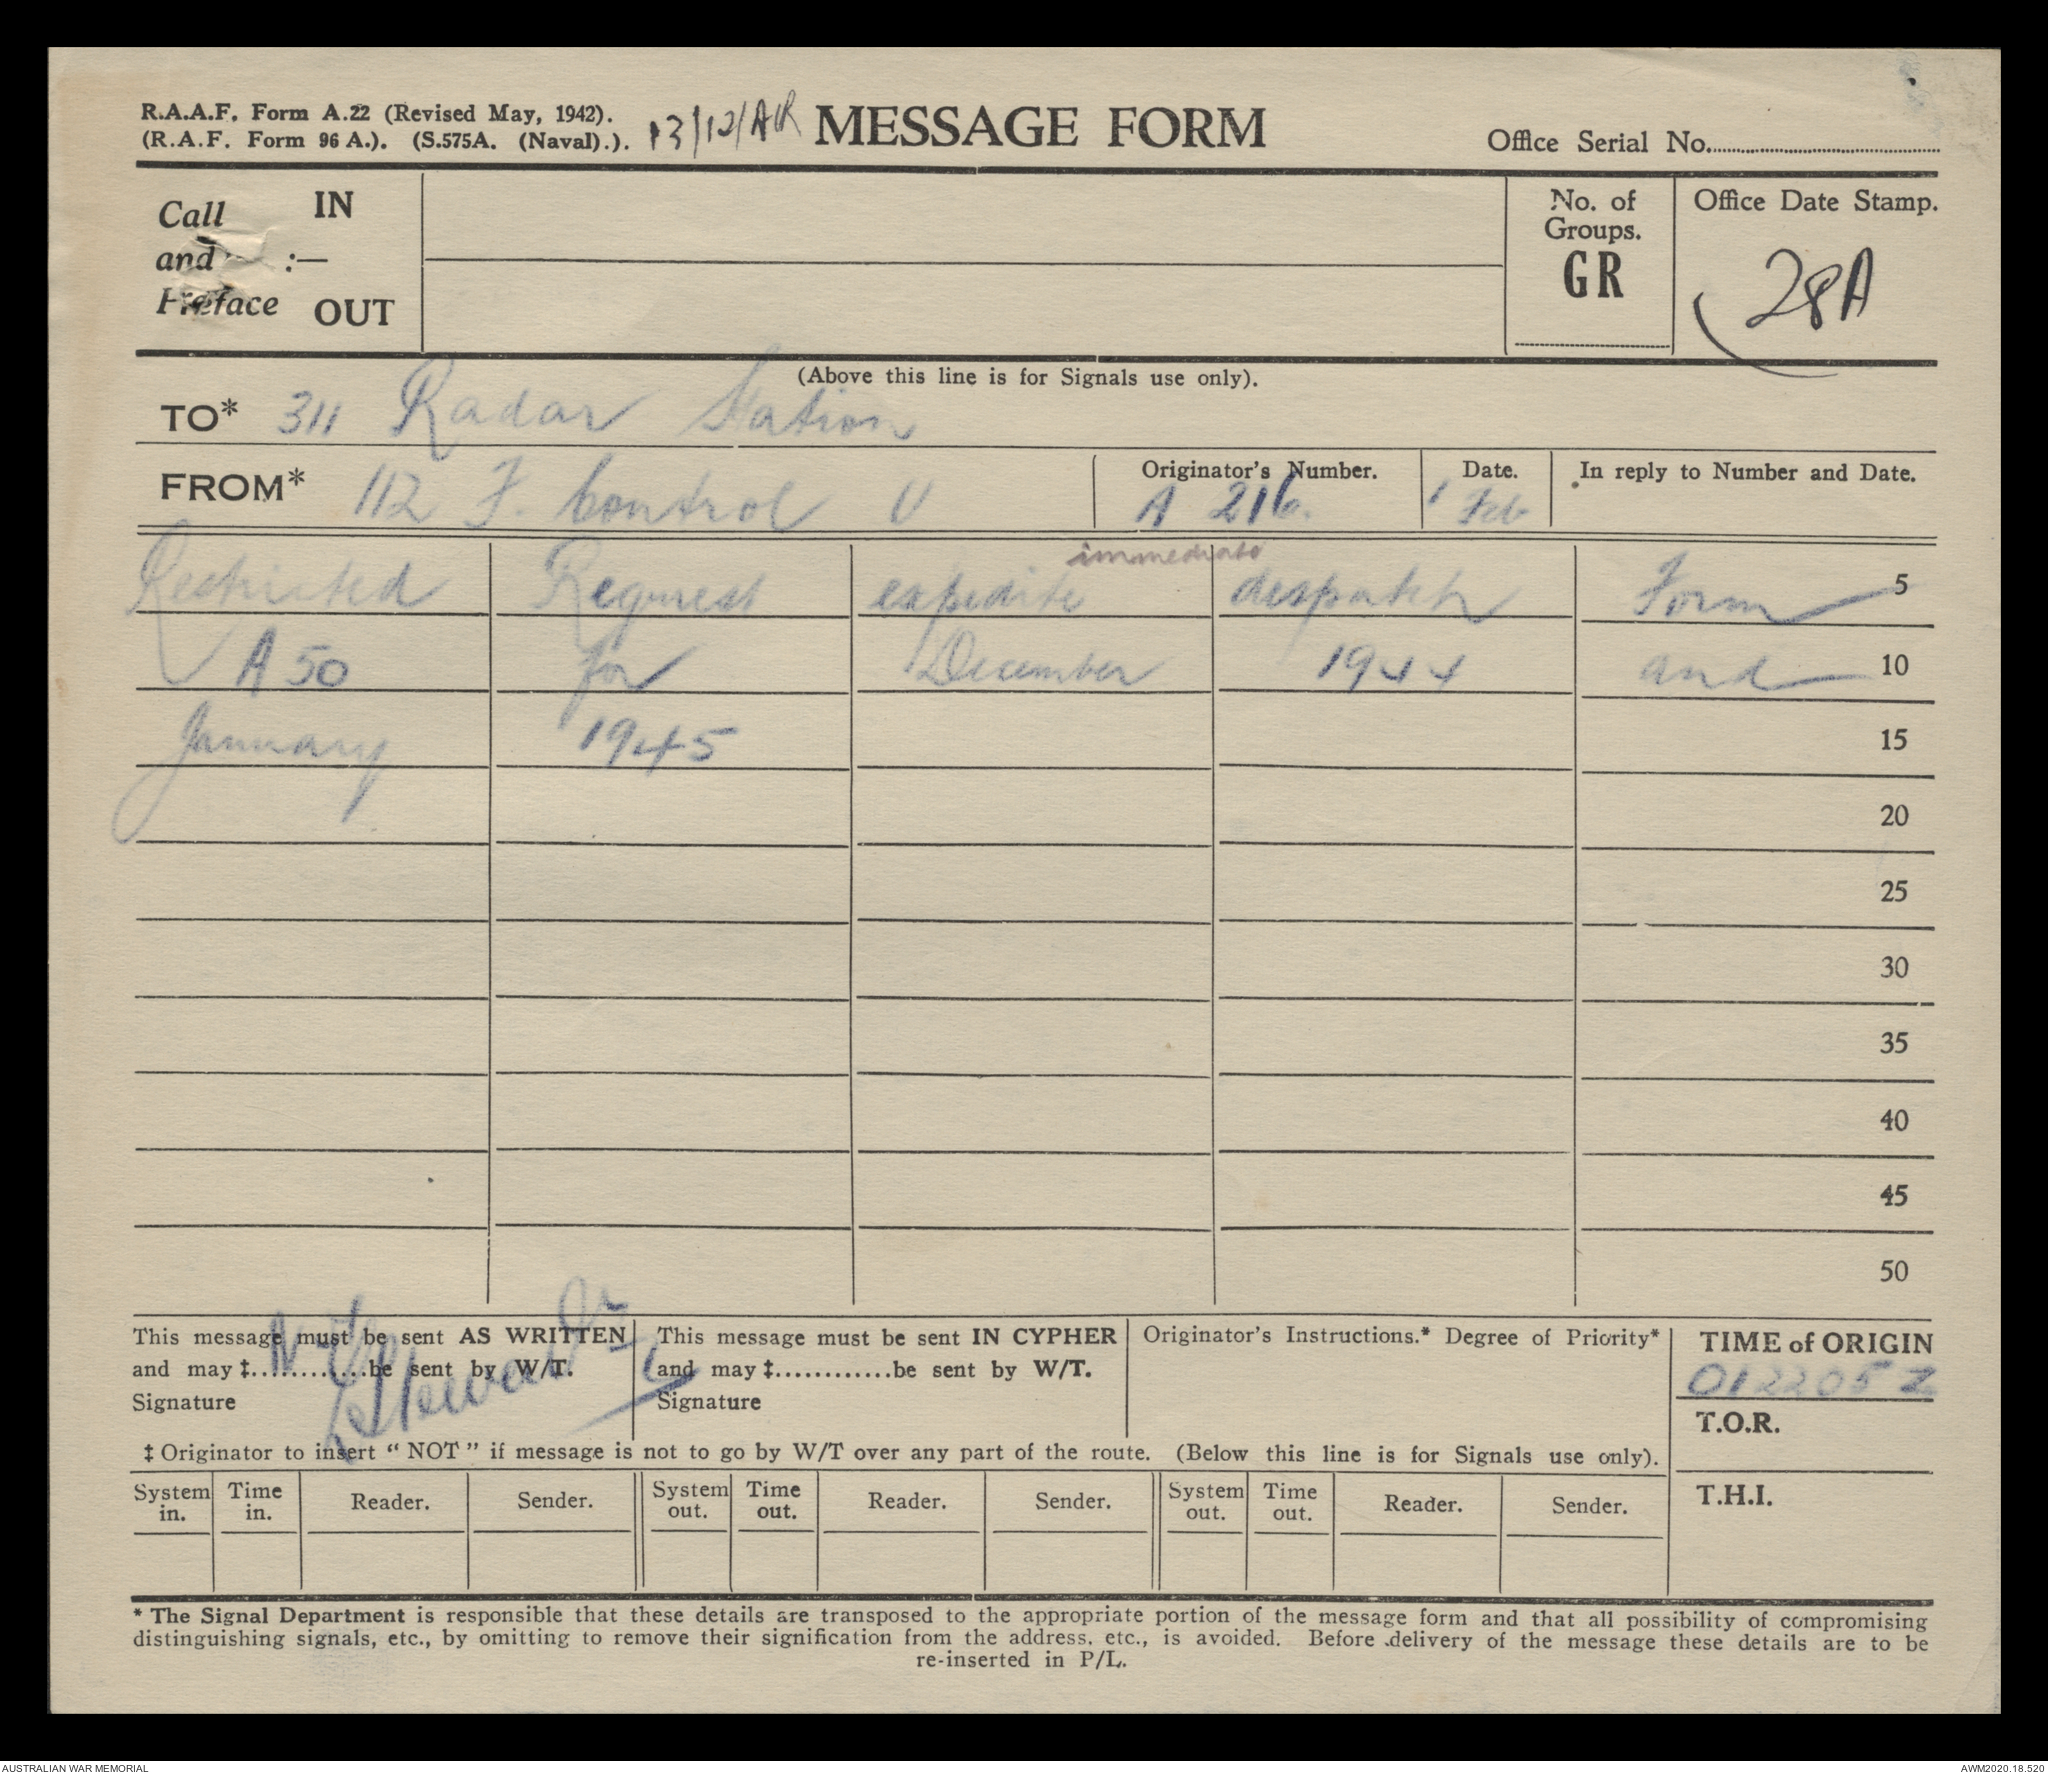 R.A.A.F. Form A.22 (Revised May, 1942).
(R.A.F. Form 96 A.). (S.575A. (Naval).).
13/12/AR
MESSAGE FORM
Office Serial No.
Call and Preface :— IN OUT
No. of Groups. GR
Office Date Stamp.
28A
(Above this line is for Signals use only).
TO* 311 Radar Station
FROM* 112 F. Control U
Originator's Number. A 216.
Date. 1 Feb
In reply to Number and Date.
immediate
Restricted Request expedite despatch Form 5
A 50 for December 1944 and 10
January 1945 15
20
25
30
35
40
45
50
This message must be sent AS WRITTEN
and may ‡............be sent by W/T.
Signature
This message must be sent IN CYPHER
and may ‡............be sent by W/T.
Signature
Originator's Instructions.* Degree of Priority*
TIME of ORIGIN
012205 Z
T.O.R.
T.H.I.
‡ Originator to insert “ NOT ” if message is not to go by W/T over any part of the route. (Below this line is for Signals use only).
System in. Time in. Reader. Sender. System out. Time out. Reader. Sender. System out. Time out. Reader. Sender.
* The Signal Department is responsible that these details are transposed to the appropriate portion of the message form and that all possibility of compromising
distinguishing signals, etc., by omitting to remove their signification from the address, etc., is avoided. Before delivery of the message these details are to be
re-inserted in P/L.
AUSTRALIAN WAR MEMORIAL
AWM2020.18.520